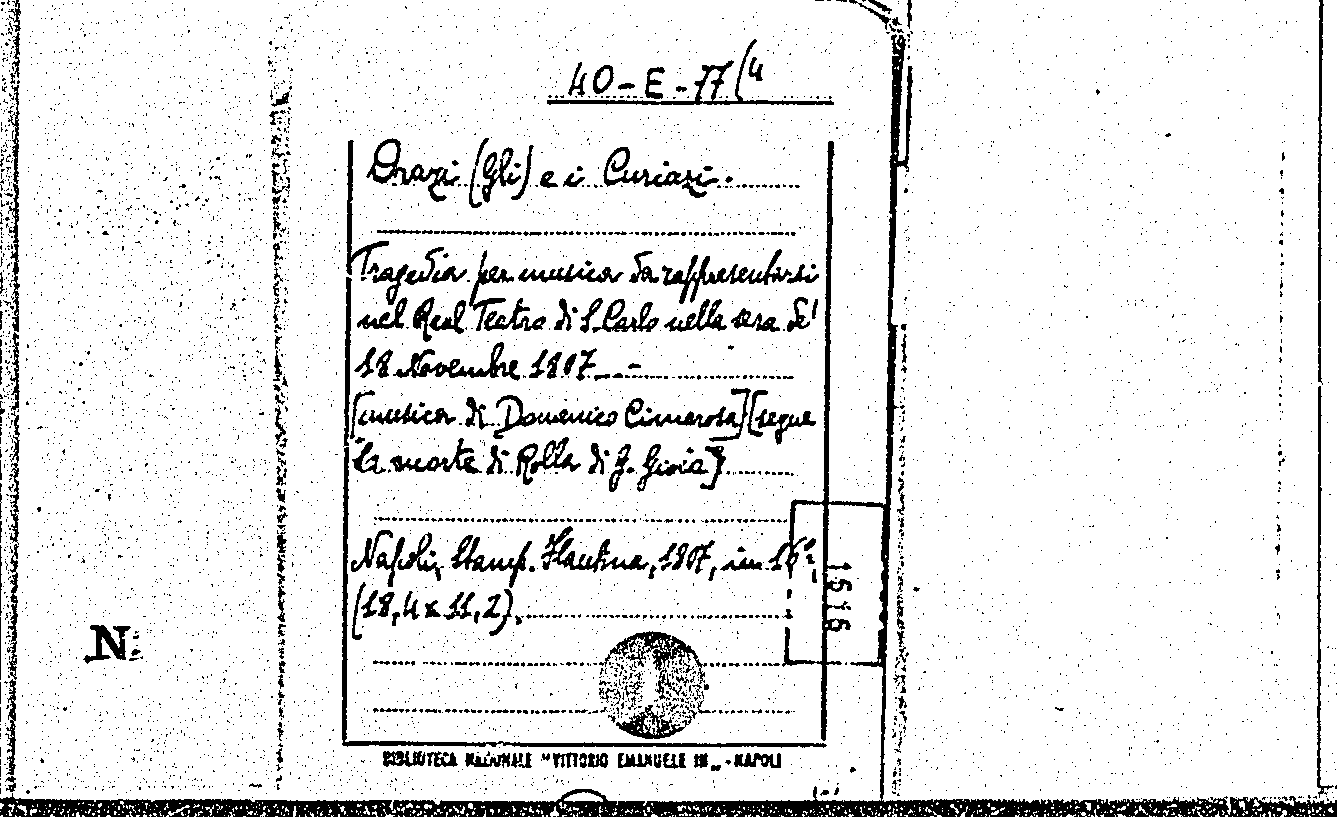 40-E-77(4
Orazi (Gli) e i Curiazi.
Tragedia per musica da rappresentarsi
nel Real Teatro di S. Carlo nella sera de'
18 Novembre 1807...-
[musica di Domenico Cimarosa] [segue
la morte di Rolla di G. Gioia]
Napoli, Stamp. Flautina, 1807, in 16°,
(18,4 x 11,2).
1516
N.
BIBLIOTECA NAZIONALE "VITTORIO EMANUELE III„ - NAPOLI